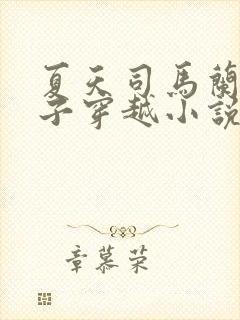 夏天司馬蘭
子穿越小說
章慕荣